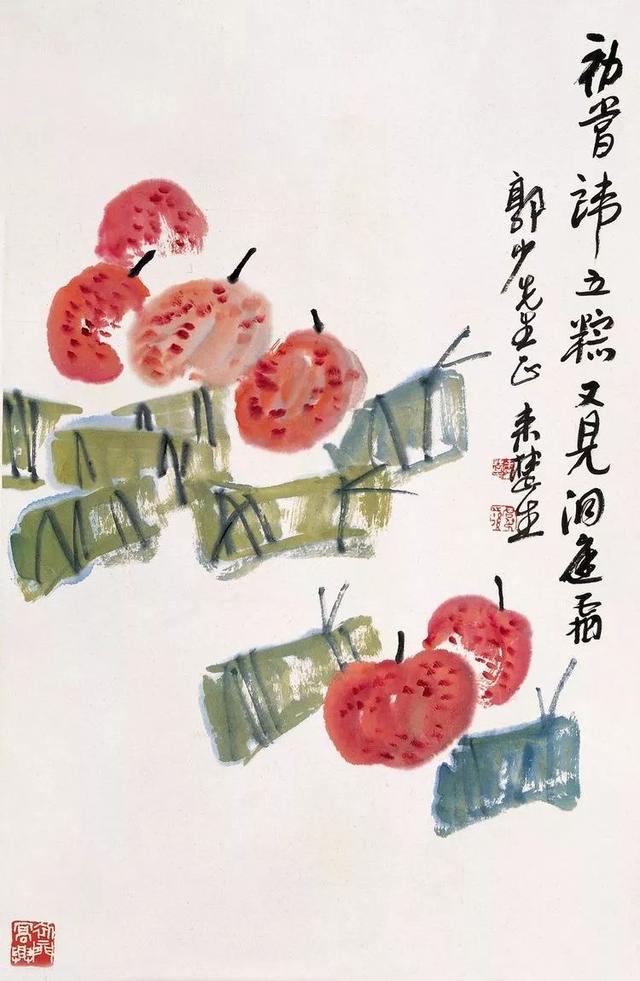 初嘗端五粽又見洞庭霜
郭少先生正 来楚生